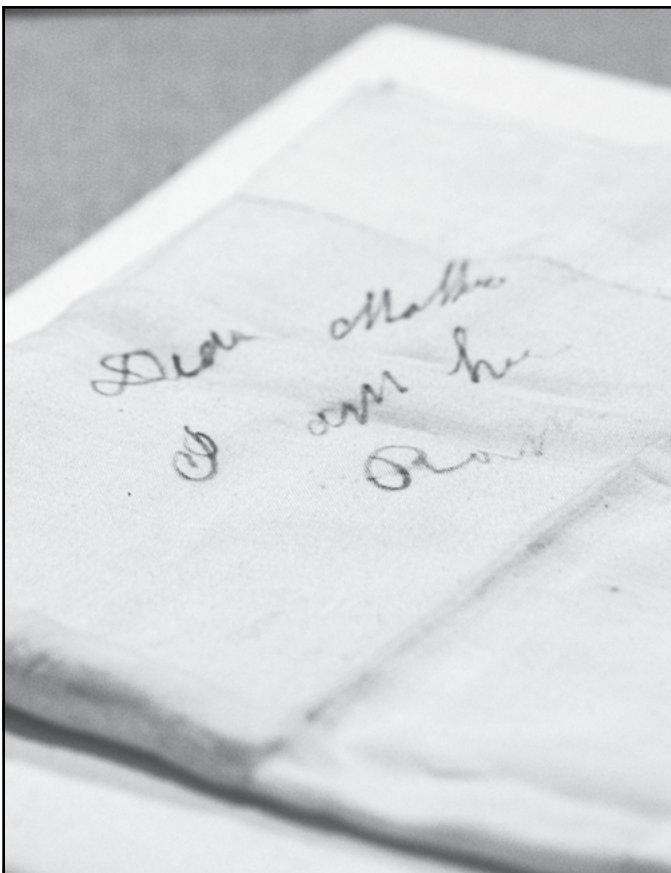 Dear Mother
I am here